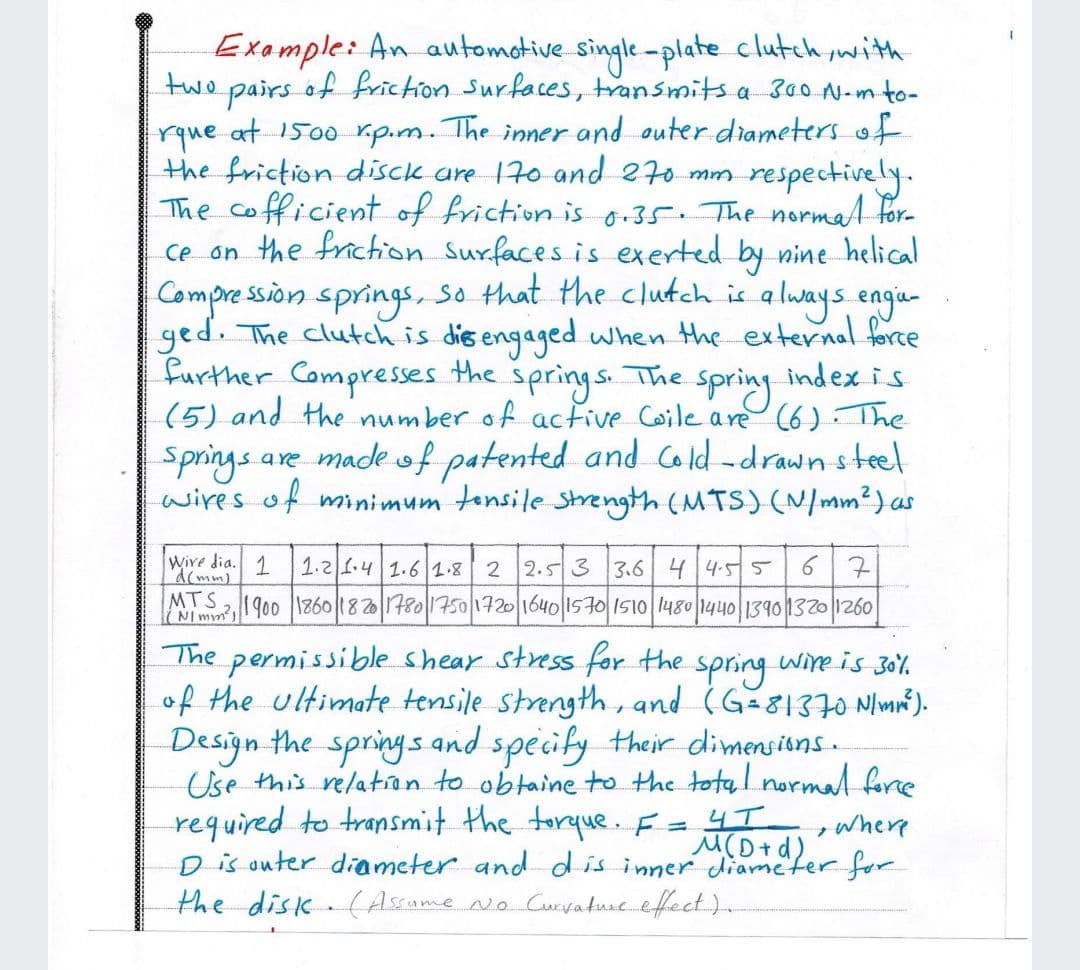 Example: An automotive single-plate clutch, with
two pairs of friction surfaces, transmits a 300 N-m to-
rque at 1500 r.p.m. The inner and outer diameters of
the friction disck are 170 and 270 mm respectively.
The cofficient of friction is 0.35. The normal for-
ce on the friction surfaces is exerted by nine helical
Compression springs, so that the clutch is always enga-
ged. The clutch is disengaged when the external force
further Compresses the springs. The spring index is
(5) and the number of active Coile are (6). The
springs are made of patented and Cold-drawn steel
wires of minimum tensile strength (MTS) (N/mm²) as
Wire dia. d(mm) 1 1.2 1.4 1.6 1.8 2 2.5 3 3.6 4 4.5 5 6 7
MTS (N/mm²) 1900 1860 1820 1780 1750 1720 1640 1570 1510 1480 1440 1390 1320 1260
The permissible shear stress for the spring wire is 30%
of the ultimate tensile strength, and (G=81370 N/mm²).
Design the springs and specify their dimensions.
Use this relation to obtaine to the total normal force
required to transmit the torque. F = 4T / M(D+d), where
D is outer diameter and d is inner diameter for
the disk. (Assume No Curvature effect).